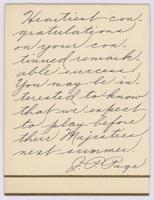 Heartiest con-
gratulations
on your con-
tinued remark-
able success.
You may be in-
terested to know
that we expect
to play before
their Majesties
next summer.
J. P. Page